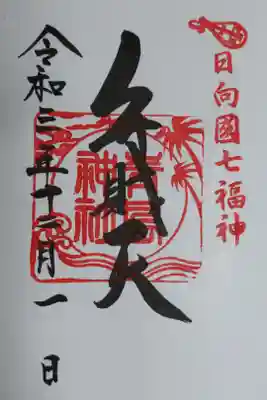 日向國七福神
弁財天
青島神社
令和三年十二月一日